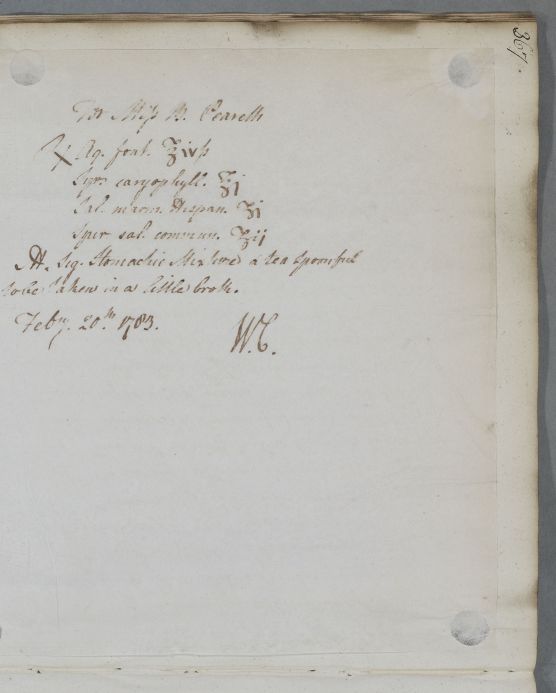 367.
For Miss M. Peareth
℞ Aq. font. ℥ivß
Syr. caryophyll. ℥j
Sal. marin. Hispan. ʒj
Spir. sal. commun. ʒij
M. Sig. Stomachic Mixture a tea spoonful
to be taken in a little broth.
Feby. 20.th 1783.
W.C.